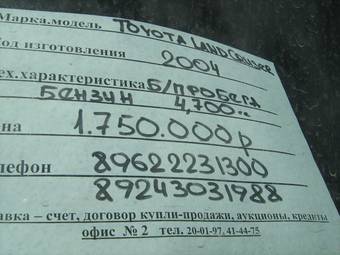 Марка.модель TOYOTA LAND CRUSER
од изготовления 2004
ех.характеристика Б/ПРОБЕГА
БЕНЗИН 4,700
на 1.750.000р
лефон 89622231300
89243031988
авка – счет, договор купли-продажи, аукционы, кредиты
офис № 2 тел. 20-01-97, 41-44-75